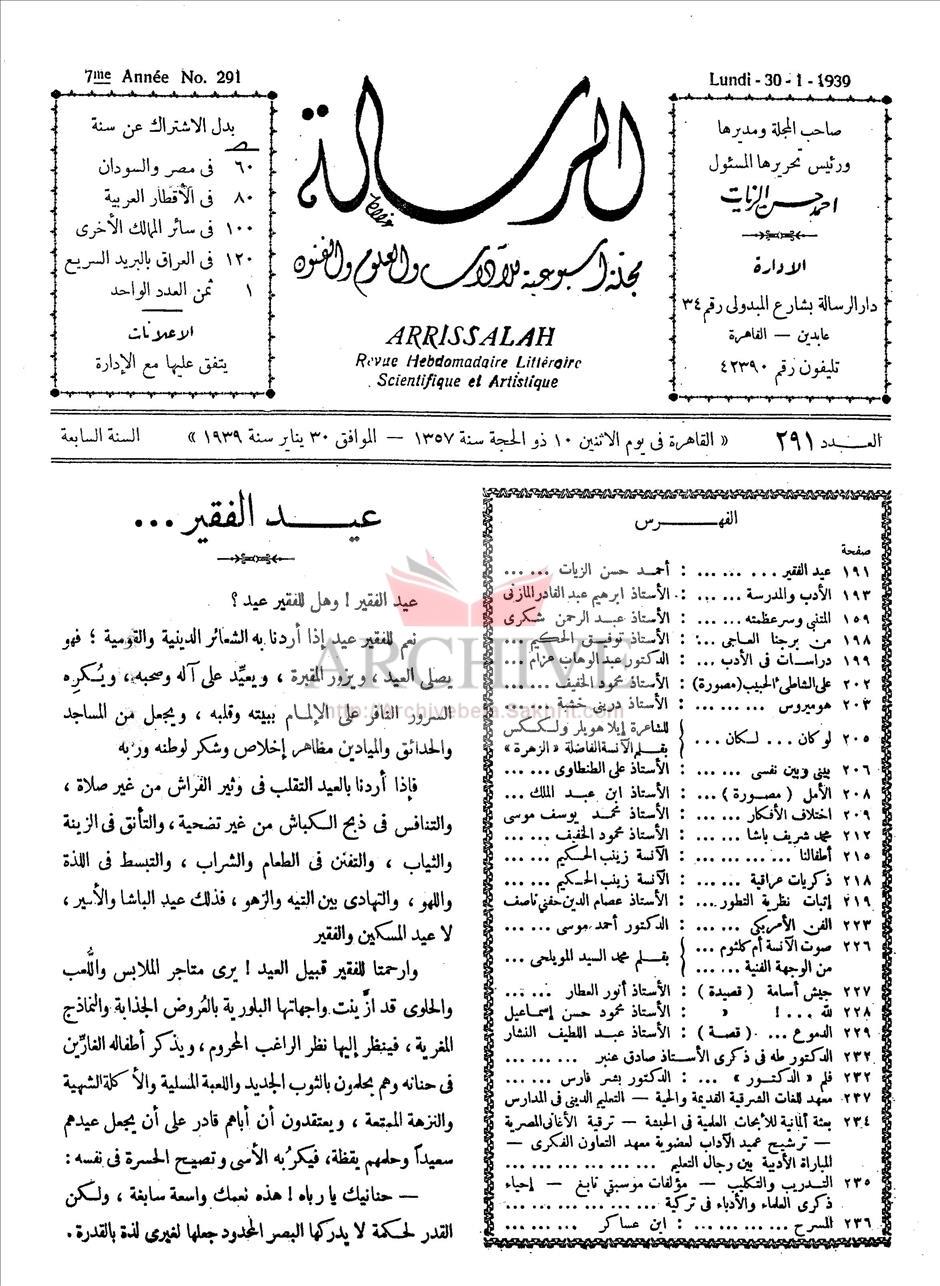 7me Année No. 291
Lundi - 30 - 1 - 1939
صاحب المجلة ومديرها
ورئيس تحريرها المسئول
احمد حسن الزيات
الادارة
دار الرسالة بشارع المبدولى رقم ٣٤
عابدين — القاهرة
تليفون رقم ٤٢٣٩٠
الرسالة
مجلة أسبوعية للآداب والعلوم والفنون
ARRISSALAH
Revue Hebdomadaire Littéraire
Scientifique et Artistique
بدل الاشتراك عن سنة
٦٠ فى مصر والسودان
٨٠ فى الأقطار العربية
١٠٠ فى سائر الممالك الأخرى
١٢٠ فى العراق بالبريد السريع
١ ثمن العدد الواحد
الاعلانات
يتفق عليها مع الإدارة
العـدد ٢٩١ « القاهرة فى يوم الاثنين ١٠ ذو الحجة سنة ١٣٥٧ — الموافق ٣٠ يناير سنة ١٩٣٩ » السنة السابعة
الفهـــرس
صفحة
١٩١ عيد الفقير ... ... ... : أحمد حسن الزيات ... ...
١٩٣ الأدب والمدرسة ... ... : الأستاذ ابرهيم عبد القادر المازنى
١٥٩ المتنبى وسر عظمته ... ... : الأستاذ عبد الرحمن شكرى
١٩٨ من برجنا العاجى ... : الأستاذ توفيق الحكيم ...
١٩٩ دراسات فى الأدب ... : الدكتور عبد الوهاب عزام ...
٢٠٢ على الشاطئ الحبيب (مصورة) : الأستاذ محمود الخفيف ...
٢٠٣ هوميروس ... ... ... : الأستاذ درينى خشبة ... ...
٢٠٥ لو كان ... لـكان ... { للشاعرة إيلا هويلر ولـكـكس
بقـلم الآنسة الفاضلة « الزهرة »
٢٠٦ بينى وبين نفسى ... ... : الأستاذ على الطنطاوى ...
٢٠٨ الأمل ( مصـورة ) ... : الأستاذ ابن عبد الملك ...
٢٠٩ اختلاف الأفكار ... ... : الأستاذ محمد يوسف موسى
٢١٢ محمد شريف باشا ... ... : الأستاذ محمود الخفيف ...
٢١٥ أطفالنا ... ... ... ... : الآنسة زينب الحـكيم ... ...
٢١٨ ذكريات عراقية ... ... : الآنسة زينب الحـكيم ... ...
٢١٩ إثبات نظرية التطور ... : الأستاذ عصام الدين حفنى ناصف
٢٢٣ الفن الأمريكى ... ... : الدكتور أحمد موسى ... ...
٢٢٦ صوت الآنسة أم كلثوم ... } بقـلم محمد السيد المويلحى ...
من الوجهة الفنية ... ...
٢٢٧ جيش أسامة ( قصيدة ) : الأستاذ أنور العطار ... ...
٢٢٨ لله ... ! « : الأستاذ محمود حسن إسماعيل
٢٢٩ الدموع ... ( قصة ) : الأستاذ عبد اللطيف النشار
٢٣٢ الدكتور طه فى ذكرى الأستاذ صادق عنبر ... ... ...
٢٣٢ قلم « الدكـتور » ... : الدكتور بشر فارس ... ...
٢٣٧ معهد للغات الشرقية القديمة والحية — التعليم الدينى فى المدارس
٢٣٤ بعثة ألمانية للأبحاث العلمية فى الحبشة — ترقية الأغانى المصرية
— ترشيح عميد الآداب لعضوية معهد التعاون الفكرى —
المباراة الأدبية بين رجال التعليم ... ... ... ...
٢٣٥ التـدريب والتـكليب — مؤلفات موسيقى نابغ — إحياء
ذكرى العلماء والأدباء فى تركية ... ... ... ...
٢٣٦ المسرح ... ... ... ... : ابن عساكر ... ... ...
عيــد الفقير ...
عيد الفقير ! وهل للفقير عيد ؟
نعم للفقير عيد إذا أردنا به الشعائر الدينية والقومية ؛ فهو
يصلى العيد ، ويزور المقبرة ، ويعيِّد على آله وصحبه ، ويُكرِه
السرور النافر على الإلمام ببيته وقلبه ، ويجعل من المساجد
والحدائق والميادين مظاهر إخلاص وشكر لوطنه وربه
فإذا أردنا بالعيد التقلب فى وثير الفراش من غير صلاة ،
والتنافس فى ذبح الـكباش من غير تضحية ، والتأنق فى الزينة
والثياب ، والتفنن فى الطعام والشراب ، والتبسط فى اللذة
واللهو ، والتهادى بين التيه والزهو ، فذلك عيد الباشا والأمير ،
لا عيد المسكين والفقير
وارحمتا للفقير قبيل العيد ! يرى متاجر الملابس واللُّعب
والحلوى قد ازَّينت واجهاتها البلورية بالعُروض الجذابة والنماذج
المغرية ، فينظر إليها نظر الراغب المحروم ، ويذكر أطفاله الغارِّين
فى حنانه وهم يحلمون بالثوب الجديد واللعبة المسلية والأكلة الشهية
والنزهة الممتعة ، ويعتقدون أن أباهم قادر على أن يجعل عيدهم
سعيداً وحلمهم يقظة، فيكرُبه الأسى وتصيح الحسرة فى نفسه :
— حنانيك يا رباه ! هذه نعمك واسعة سابغة ، ولـكن
القدر لحكمة لا يدركها البصر المحدود جعلها لغيرى لذة بالقدرة .
ARCHIVE
http://Archivebeta.Sakhrit.com